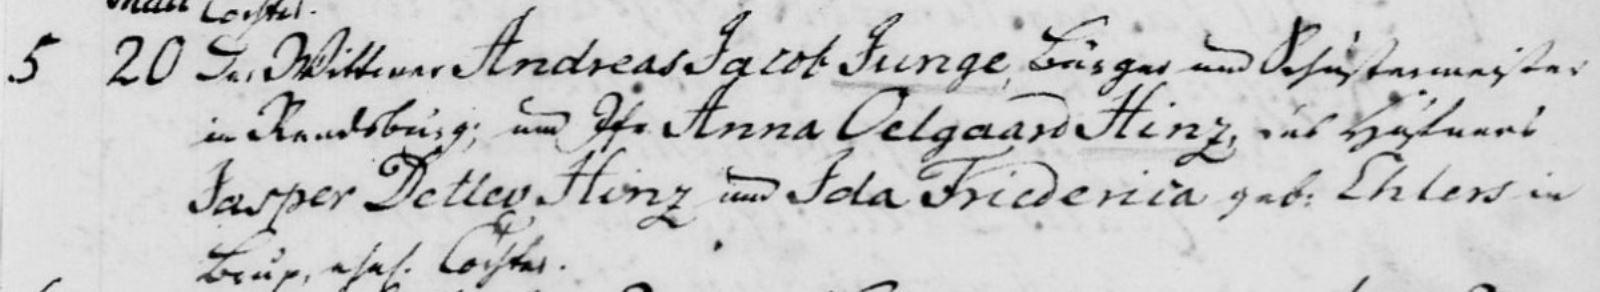 Tochter.
5 20 Der Wittwer Andreas Jacob Junge, Bürger und Schustermeister
in Rendsburg, und Jfr Anna Oelgaard Hinz, des Hufners
Jasper Detlev Hinz und Ida Friederica geb: Ehlers in
ehel. Tochter.